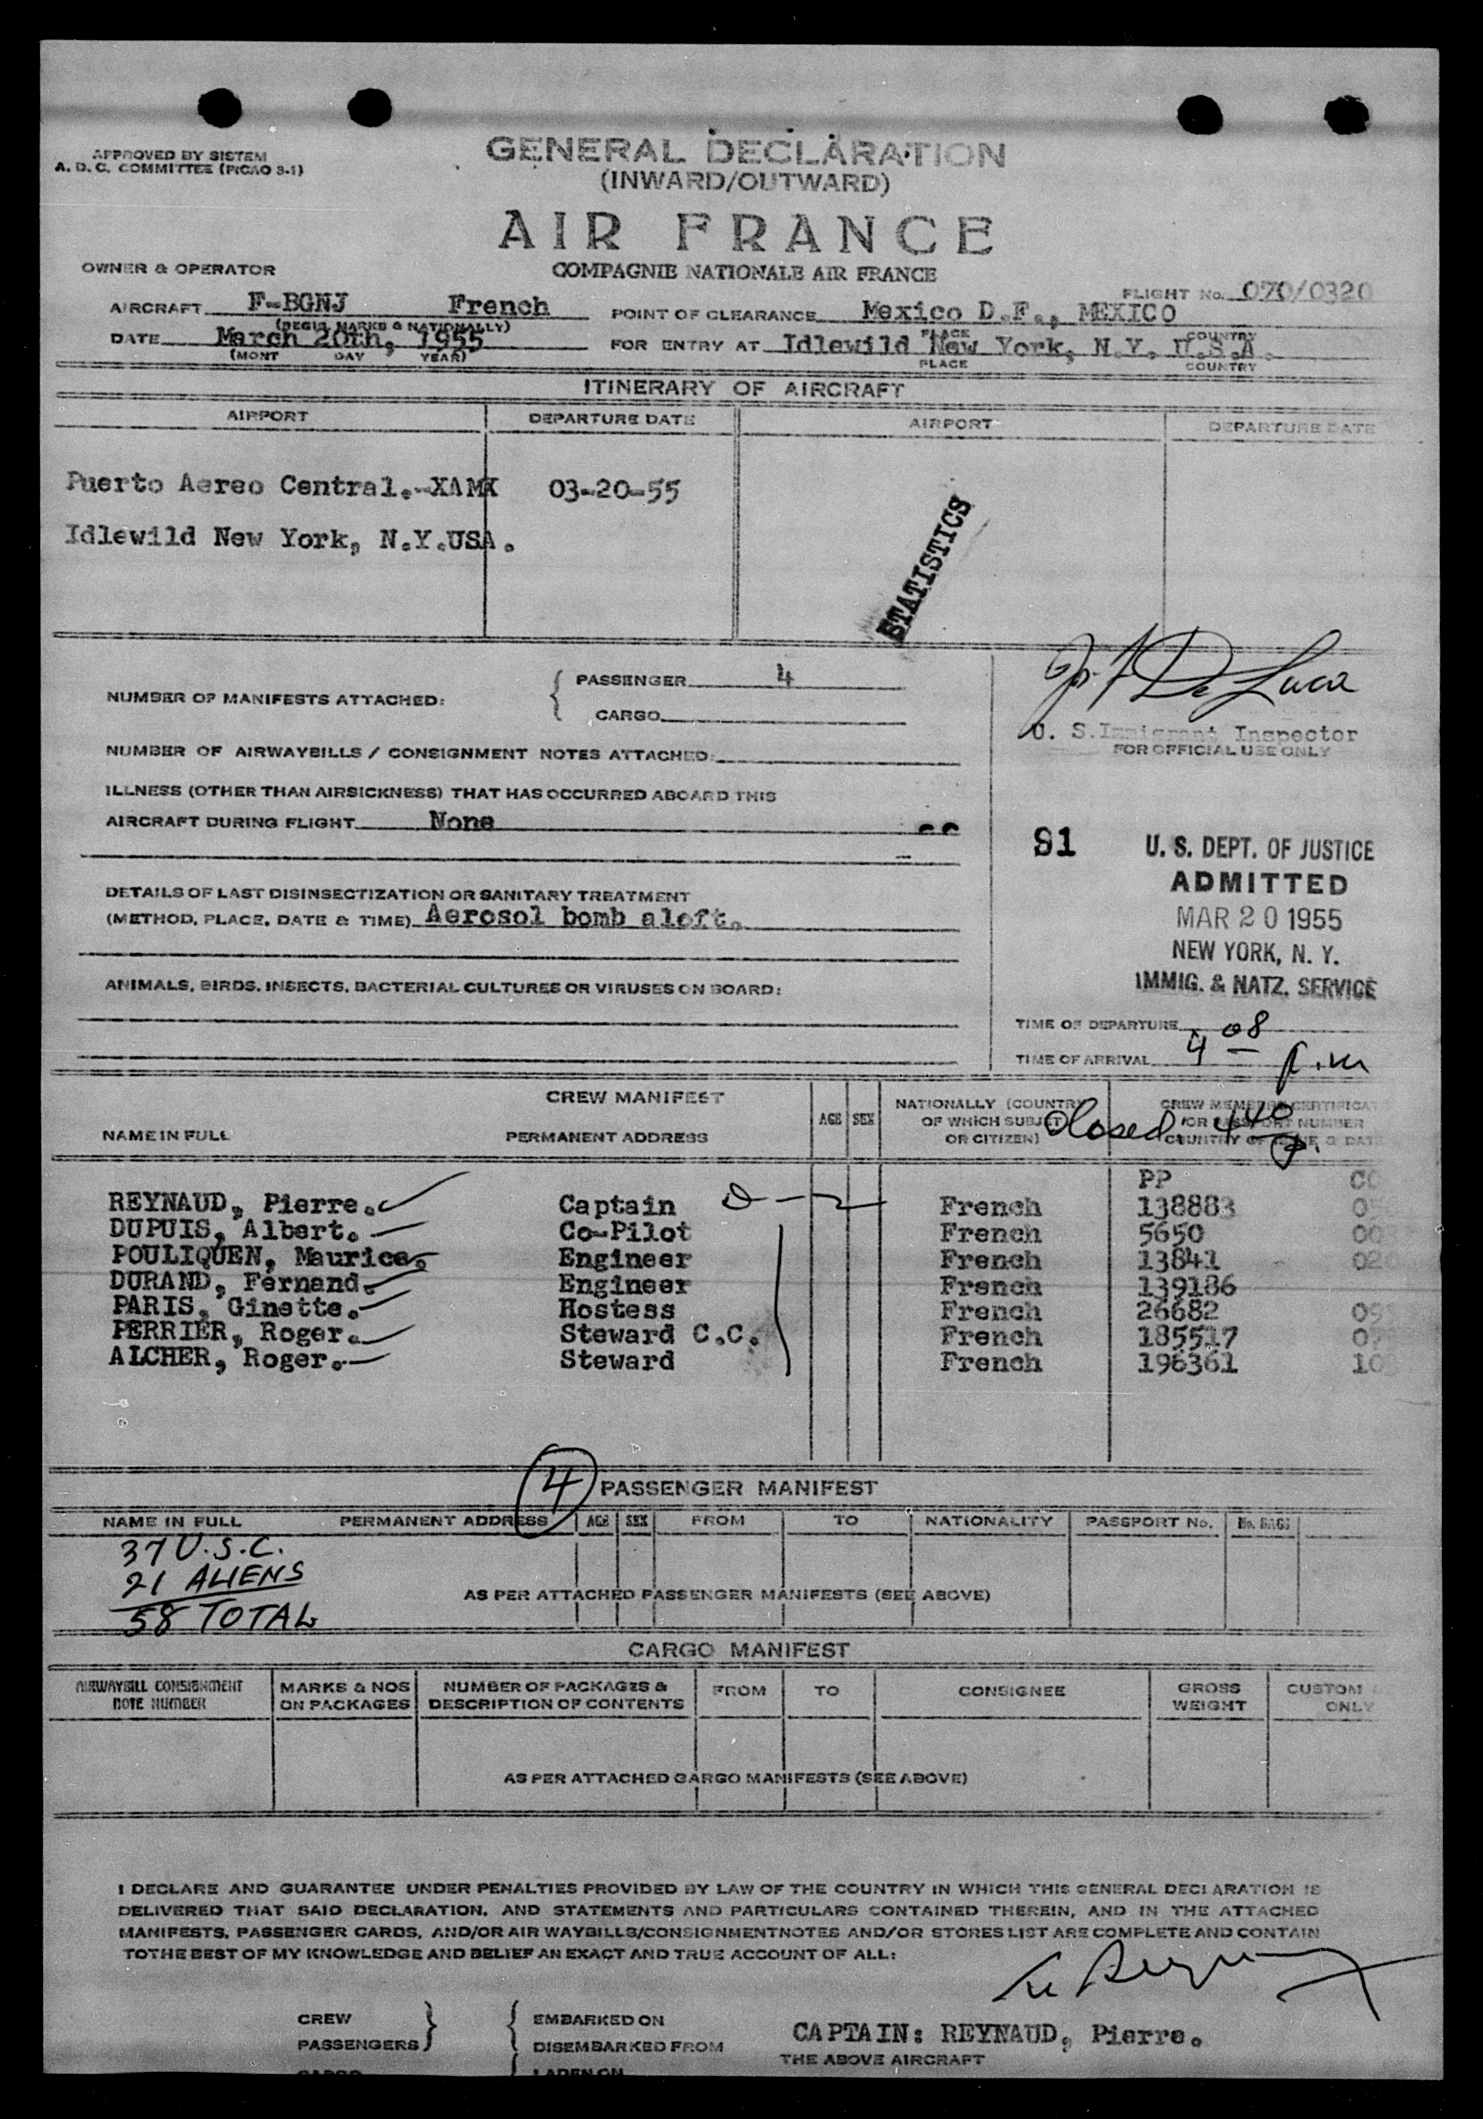 APPROVED BY SISTEM
A. D. C. COMMITTEE (PICAO 3-1)
GENERAL DECLARATION
(INWARD/OUTWARD)
AIR FRANCE
COMPAGNIE NATIONALE AIR FRANCE
OWNER & OPERATOR
FLIGHT No. 070/0320
AIRCRAFT F-BGNJ French
POINT OF CLEARANCE Mexico D.F., MEXICO
(REGIS. MARKS & NATIONALLY)
PLACE COUNTRY
DATE March 20th, 1955
FOR ENTRY AT Idlewild New York, N.Y. U.S.A.
(MONT DAY YEAR)
PLACE COUNTRY
ITINERARY OF AIRCRAFT
AIRPORT DEPARTURE DATE AIRPORT DEPARTURE DATE
Puerto Aereo Central.-XAMX 03-20-55
Idlewild New York, N.Y.USA.
STATISTICS
NUMBER OF MANIFESTS ATTACHED:
PASSENGER 4
CARGO
De Luca
U. S. Immigrant Inspector
FOR OFFICIAL USE ONLY
NUMBER OF AIRWAYBILLS / CONSIGNMENT NOTES ATTACHED:
ILLNESS (OTHER THAN AIRSICKNESS) THAT HAS OCCURRED ABOARD THIS
AIRCRAFT DURING FLIGHT None
91
U. S. DEPT. OF JUSTICE
ADMITTED
MAR 20 1955
NEW YORK, N. Y.
IMMIG. & NATZ. SERVICE
DETAILS OF LAST DISINSECTIZATION OR SANITARY TREATMENT
(METHOD, PLACE, DATE & TIME) Aerosol bomb aloft.
ANIMALS, BIRDS, INSECTS, BACTERIAL CULTURES OR VIRUSES ON BOARD:
TIME OF DEPARTURE
TIME OF ARRIVAL 4 08 p.m
CREW MANIFEST
NAME IN FULL PERMANENT ADDRESS
AGE SEX
NATIONALLY (COUNTRY
OF WHICH SUBJET
OR CITIZEN)
CREW MEMBERS CERTIFICA
/OR PASSPORT NUMBER
COUNTRY OF ISSUE & DATE
Closed 440 p.
PP
REYNAUD, Pierre. Captain French 138883
DUPUIS, Albert. Co-Pilot French 5650
POULIQUEN, Maurice. Engineer French 13841
DURAND, Fernand. Engineer French 139186
PARIS, Ginette. Hostess French 26682
PERRIER, Roger. Steward C.C. French 185517
ALCHER, Roger. Steward French 196361
4
PASSENGER MANIFEST
NAME IN FULL PERMANENT ADDRESS AGE SEX FROM TO NATIONALITY PASSPORT No. No. BAGS
37 U.S.C.
21 ALIENS
58 TOTAL
AS PER ATTACHED PASSENGER MANIFESTS (SEE ABOVE)
CARGO MANIFEST
AIRWAYBILL CONSIGNMENT
NOTE NUMBER
MARKS & NOS
ON PACKAGES
NUMBER OF PACKAGES &
DESCRIPTION OF CONTENTS
FROM TO CONSIGNEE
GROSS
WEIGHT
CUSTOM
ONLY
AS PER ATTACHED CARGO MANIFESTS (SEE ABOVE)
I DECLARE AND GUARANTEE UNDER PENALTIES PROVIDED BY LAW OF THE COUNTRY IN WHICH THIS GENERAL DECLARATION IS
DELIVERED THAT SAID DECLARATION, AND STATEMENTS AND PARTICULARS CONTAINED THEREIN, AND IN THE ATTACHED
MANIFESTS, PASSENGER CARDS, AND/OR AIR WAYBILLS/CONSIGNMENTNOTES AND/OR STORES LIST ARE COMPLETE AND CONTAIN
TOTHE BEST OF MY KNOWLEDGE AND BELIEF AN EXACT AND TRUE ACCOUNT OF ALL:
CREW
PASSENGERS
CARGO
EMBARKED ON
DISEMBARKED FROM
LADEN ON
CAPTAIN: REYNAUD, Pierre.
THE ABOVE AIRCRAFT